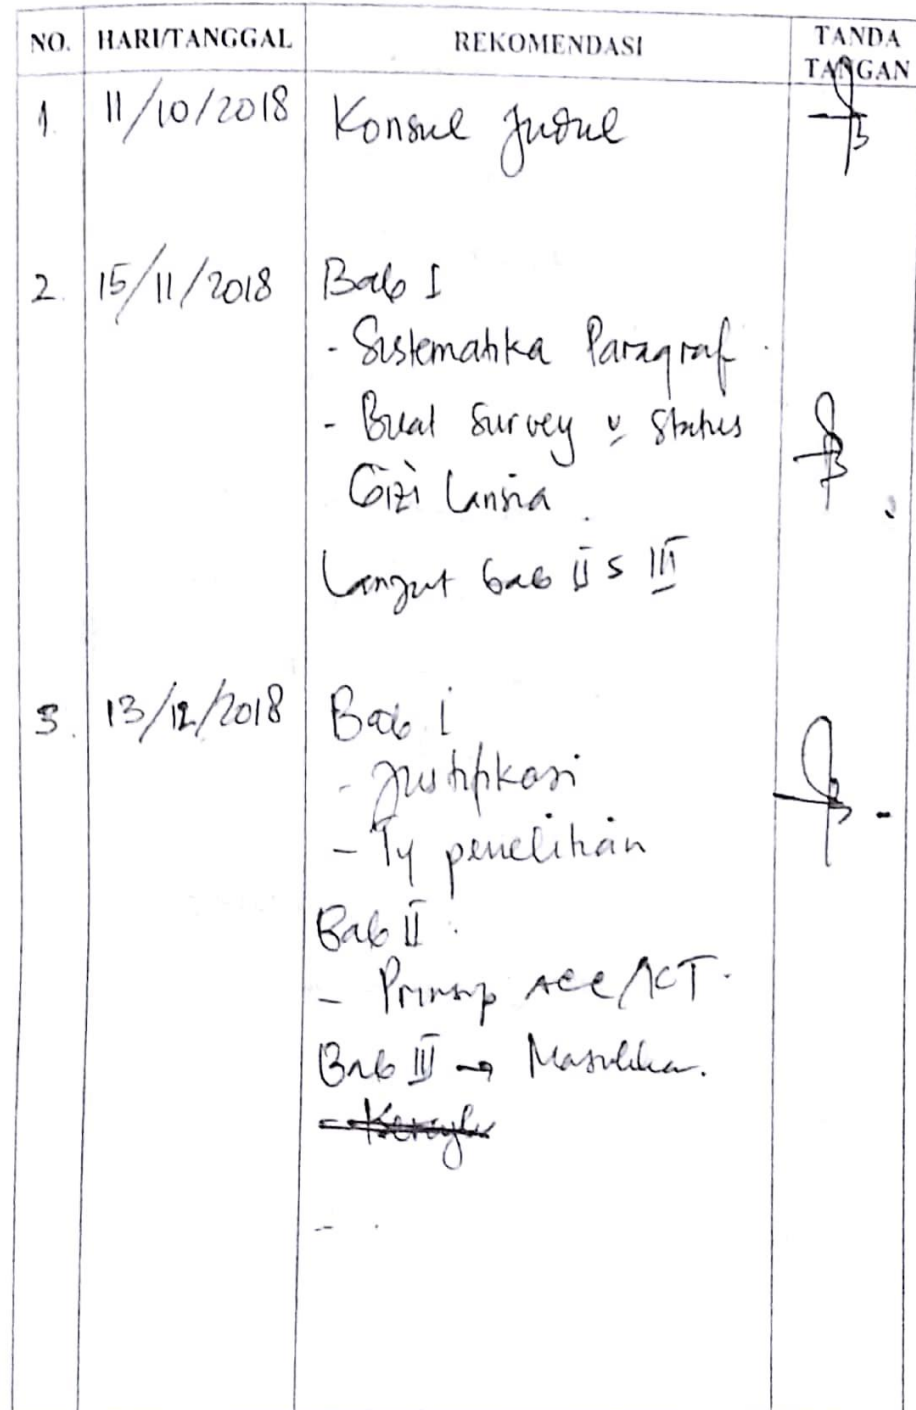 NO. HARI/TANGGAL REKOMENDASI TANDA TANGAN
1. 11/10/2018 Konsul Judul
2. 15/11/2018 Bab I
- Sistematika Paragraf
- Buat Survey u Status
Gizi Lansia
Lanjut bab II s III
3. 13/12/2018 Bab I
- Justifikasi
- Tj penelitian
Bab II
- Prinsip
Bab III → Masukkan.